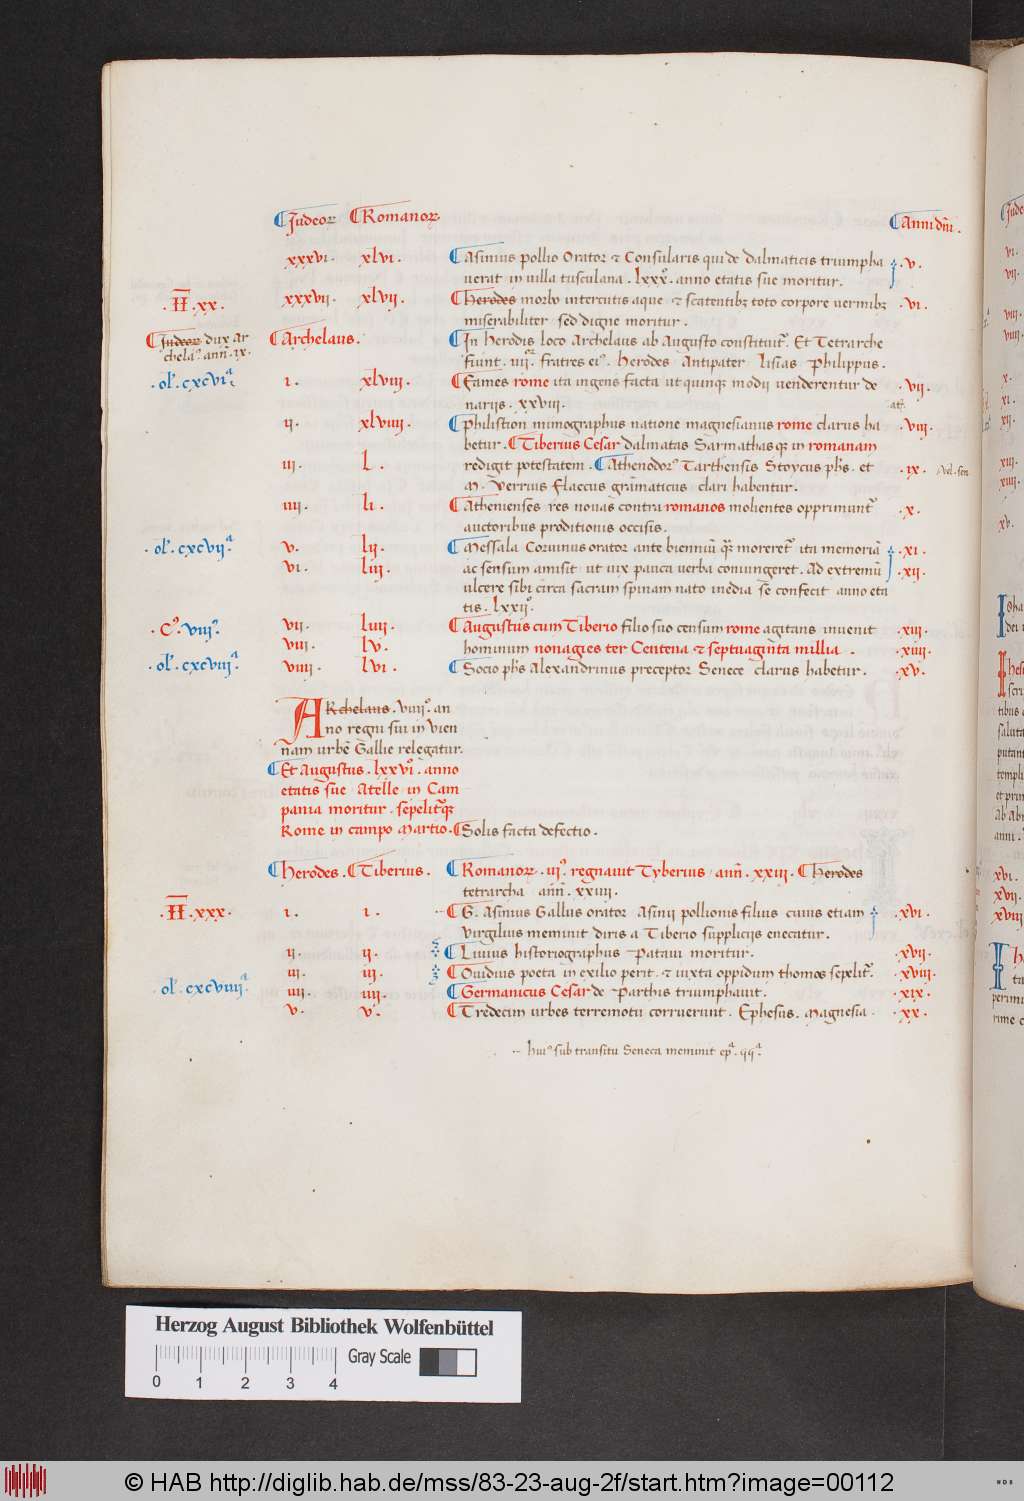 ¶Judeoꝝ ¶Romanoꝝ. ¶Anni dn̄i.
xxxvi. xlvi. ¶Asinius pollio Orator ⁊ Consularis qui de dalmaticis triumpha .v.
verat in villa tusculana .lxxxº. anno etatis sue moritur.
.H̄.xx. xxxvii. xlvii. ¶Herodes morbo intercutis aque ⁊ scatentibꝫ toto corpore vermibꝫ .vi.
miserabiliter sed digne moritur.
¶Judeoꝝ dux Ar ¶Archelaus. ¶In Herodis loco Archelaus ab Augusto constituitᷣ. Et Tetrarche
chela⁹. ann̄. ix. fiunt .iiiiᵒʳ. fratres ei⁹. Herodes Antipater Lisias Philippus.
.ol'.cxcviª. i. xlviii. ¶Fames rome ita ingens facta ut quinqꝫ modii venderentur de .vii.
nariis .xxviii.
ii. xlviiii. ¶Philistion mimographus natione magnesianus rome clarus ha .viii.
betur. ¶Tiberius Cesar dalmatas Sarmathasqꝫ in romanam
iii. L. redigit potestatem. ¶Athenodor⁹ Tarthensis Stoycus ph̄s. et .ix.
M. Verrius Flaccus gram̄aticus clari habentur.
iiii. li. ¶Athenienses res novas contra romanos molientes opprimuntᷣ .x.
auctoribus proditionis occisis.
.ol'.cxcviiª. v. lii. ¶Messala Corvinus orator ante bienniū qꝫ̄ moreretᷣ ita memoriā .xi.
vi. liii. ac sensum amisit ut vix pauca verba coniungeret. Ad extremū .xii.
ulcere sibi circa sacram spinam nato inedia se confecit anno eta
tis .lxxiiº.
.Cº.viiiº. vii. liiii. ¶Augustus cum Tiberio filio suo censum rome agitans invenit .xiii.
viii. lv. hominum nonagies ter Centena ⁊ septuagīta millia. .xiiii.
.ol'.cxcviiiª. viiii. lvi. ¶Socio ph̄s Alexandrinus preceptor Senece clarus habetur. .xv.
ARchelaus .viiiiº. an
no regni sui in Vien
nam urbē Gallie relegatur.
¶Et Augustus .lxxviº. anno
etatis sue Atelle in Cam
pania moritur. sepeliturqꝫ
Rome in campo Martio. ¶Solis facta defectio.
¶Herodes. ¶Tiberius. ¶Romanoꝝ .iiiº. regnavit Tyberius ann̄. xxiii. ¶Herodes
tetrarcha ann̄. xxiiii.
.H̄.xxx. i. i. ¶G. Asinius Gallus orator Asinii pollionis filius cuius etiam .xvi.
Virgilius meminit diris a Tiberio suppliciis enecatur.
ii. ii. ¶Livius historiographus Patavi moritur. .xvii.
iii. iii. ¶Ovidius poeta in exilio perit ⁊ iuxta oppidum thomos sepelitᷣ. .xviii.
.ol'.cxcviiiiª. iiii. iiii. ¶Germanicus Cesar de Parthis triumphavit. .xix.
v. v. ¶Tredecim urbes terremotu corruerunt. Ephesus. Magnesia. .xx.
hui⁹ sub transitu Seneca meminit
Herzog August Bibliothek Wolfenbüttel
Gray Scale
0 1 2 3 4
© HAB http://diglib.hab.de/mss/83-23-aug-2f/start.htm?image=00112